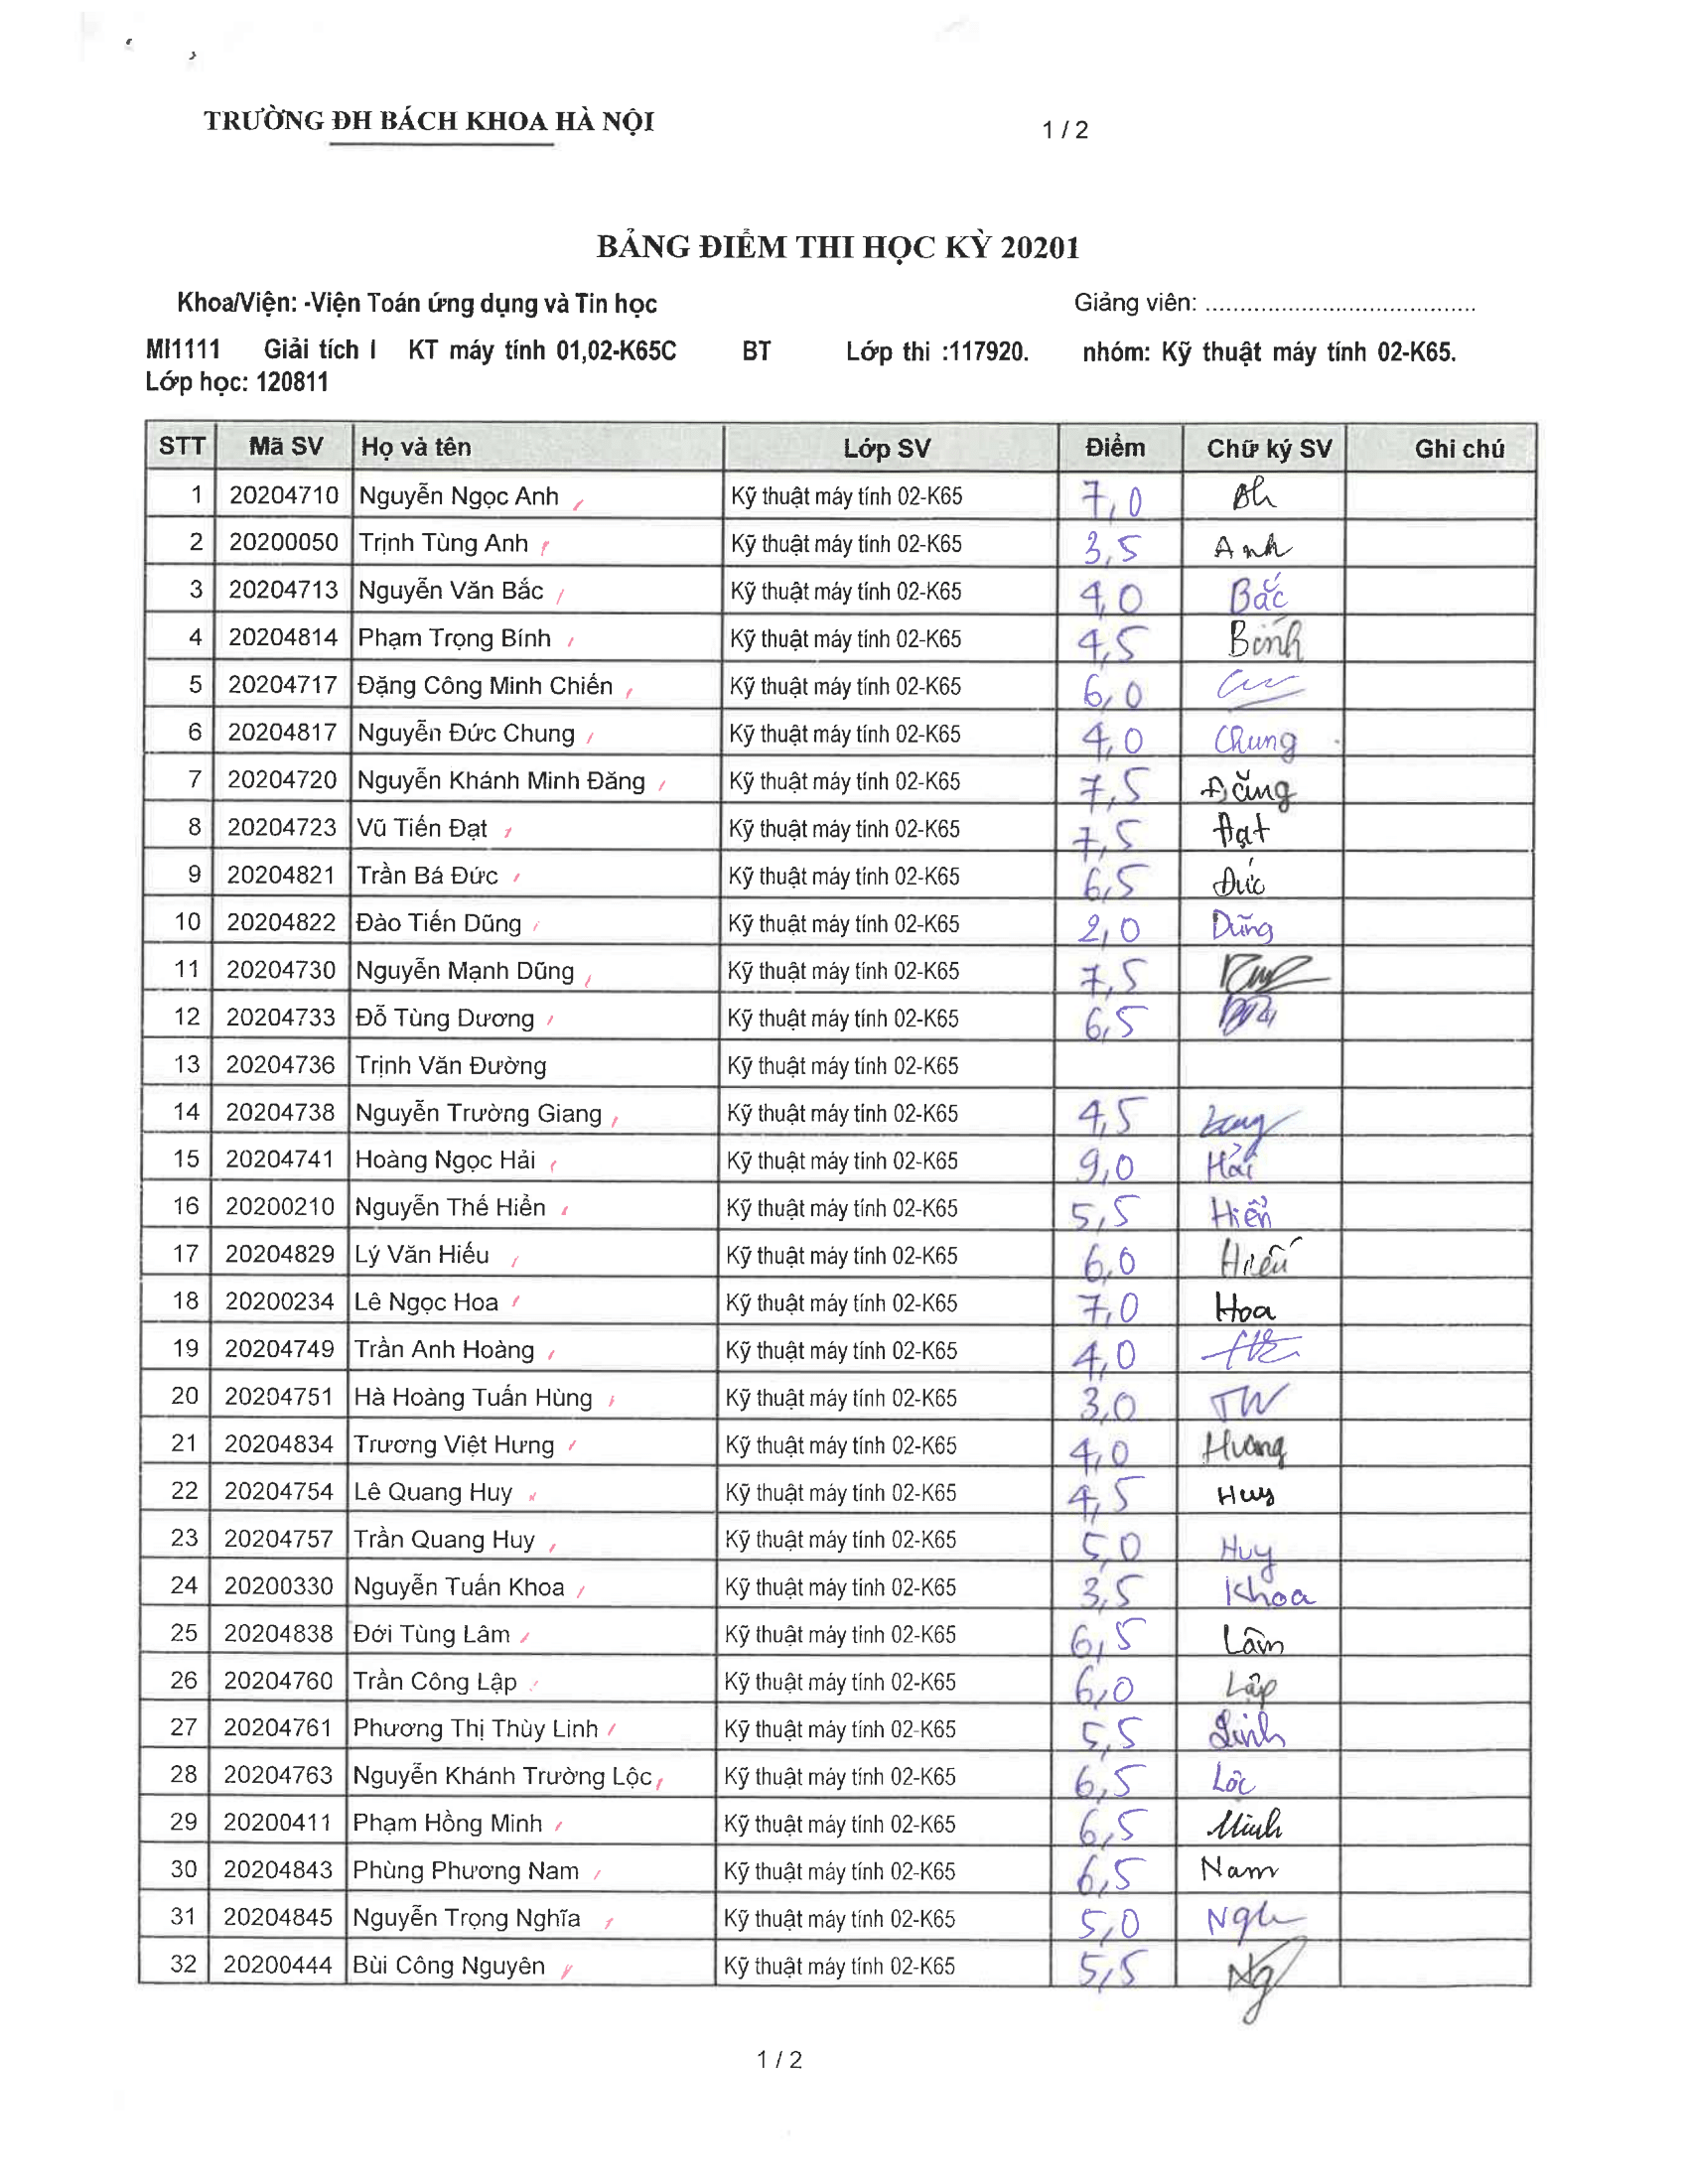 TRƯỜNG ĐH BÁCH KHOA HÀ NỘI 1 / 2
BẢNG ĐIỂM THI HỌC KỲ 20201
Khoa/Viện: -Viện Toán ứng dụng và Tin học Giảng viên: ........................................
MI1111 Giải tích I KT máy tính 01,02-K65C BT Lớp thi :117920. nhóm: Kỹ thuật máy tính 02-K65.
Lớp học: 120811
STT Mã SV Họ và tên Lớp SV Điểm Chữ ký SV Ghi chú
1 20204710 Nguyễn Ngọc Anh Kỹ thuật máy tính 02-K65 7,0
2 20200050 Trịnh Tùng Anh Kỹ thuật máy tính 02-K65 3,5 Anh
3 20204713 Nguyễn Văn Bắc Kỹ thuật máy tính 02-K65 4,0 Bắc
4 20204814 Phạm Trọng Bính Kỹ thuật máy tính 02-K65 4,5 Bính
5 20204717 Đặng Công Minh Chiến Kỹ thuật máy tính 02-K65 6,0
6 20204817 Nguyễn Đức Chung Kỹ thuật máy tính 02-K65 4,0 Chung
7 20204720 Nguyễn Khánh Minh Đăng Kỹ thuật máy tính 02-K65 7,5 Đăng
8 20204723 Vũ Tiến Đạt Kỹ thuật máy tính 02-K65 7,5 Đạt
9 20204821 Trần Bá Đức Kỹ thuật máy tính 02-K65 6,5 Đức
10 20204822 Đào Tiến Dũng Kỹ thuật máy tính 02-K65 2,0 Dũng
11 20204730 Nguyễn Mạnh Dũng Kỹ thuật máy tính 02-K65 7,5
12 20204733 Đỗ Tùng Dương Kỹ thuật máy tính 02-K65 6,5
13 20204736 Trịnh Văn Đường Kỹ thuật máy tính 02-K65
14 20204738 Nguyễn Trường Giang Kỹ thuật máy tính 02-K65 4,5
15 20204741 Hoàng Ngọc Hải Kỹ thuật máy tính 02-K65 9,0 Hải
16 20200210 Nguyễn Thế Hiển Kỹ thuật máy tính 02-K65 5,5 Hiển
17 20204829 Lý Văn Hiếu Kỹ thuật máy tính 02-K65 6,0 Hiếu
18 20200234 Lê Ngọc Hoa Kỹ thuật máy tính 02-K65 7,0 Hoa
19 20204749 Trần Anh Hoàng Kỹ thuật máy tính 02-K65 4,0
20 20204751 Hà Hoàng Tuấn Hùng Kỹ thuật máy tính 02-K65 3,0
21 20204834 Trương Việt Hưng Kỹ thuật máy tính 02-K65 4,0 Hưng
22 20204754 Lê Quang Huy Kỹ thuật máy tính 02-K65 4,5 Huy
23 20204757 Trần Quang Huy Kỹ thuật máy tính 02-K65 5,0 Huy
24 20200330 Nguyễn Tuấn Khoa Kỹ thuật máy tính 02-K65 3,5 Khoa
25 20204838 Đới Tùng Lâm Kỹ thuật máy tính 02-K65 6,5 Lâm
26 20204760 Trần Công Lập Kỹ thuật máy tính 02-K65 6,0 Lập
27 20204761 Phương Thị Thùy Linh Kỹ thuật máy tính 02-K65 5,5 Linh
28 20204763 Nguyễn Khánh Trường Lộc Kỹ thuật máy tính 02-K65 6,5 Lộc
29 20200411 Phạm Hồng Minh Kỹ thuật máy tính 02-K65 6,5 Minh
30 20204843 Phùng Phương Nam Kỹ thuật máy tính 02-K65 6,5 Nam
31 20204845 Nguyễn Trọng Nghĩa Kỹ thuật máy tính 02-K65 5,0
32 20200444 Bùi Công Nguyên Kỹ thuật máy tính 02-K65 5,5 Ng
1 / 2